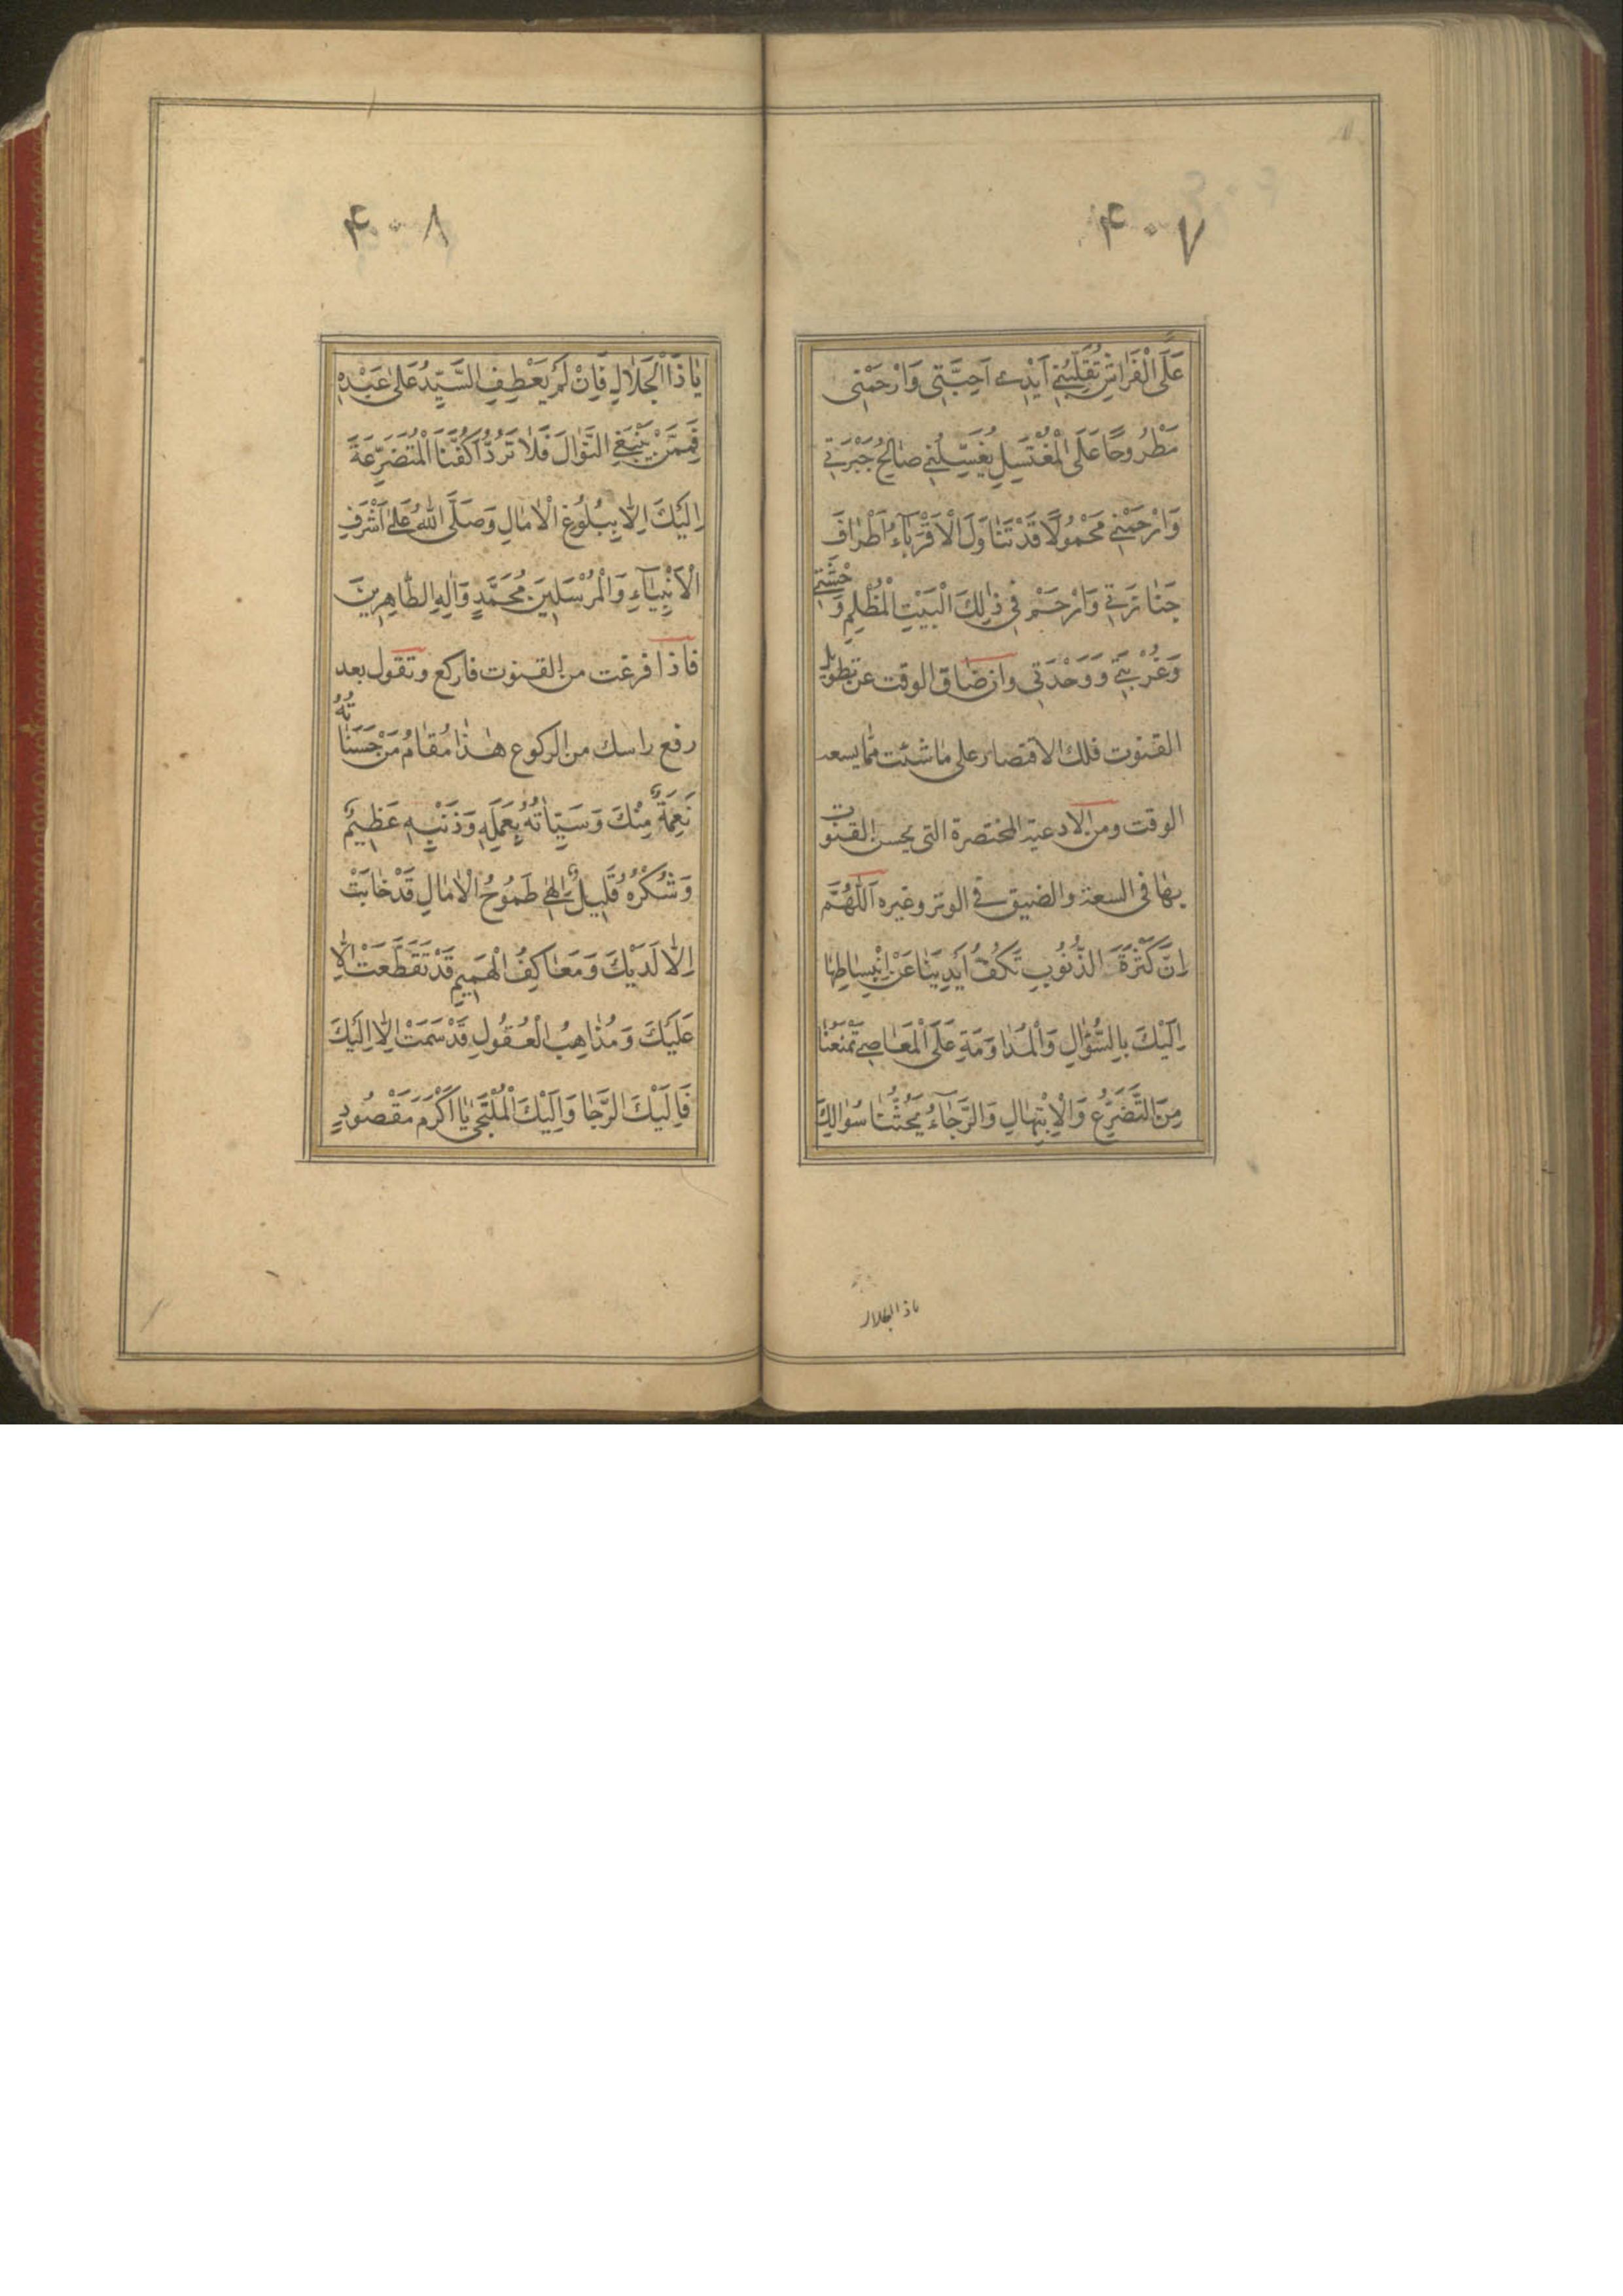 ۴۰۷
عَلَى الْفَرَاشِ تُقَلِّبُنِي اَيْدِي اَحِبَّتِي وَارْحَمْنِي
مَطْرُوحًا عَلَى الْمُغْتَسَلِ يُغَسِّلُنِي صٰالِحُ جَيْرَتِي
وَارْحَمْنِي مَحْمُولًا قَدْ تَنٰاوَلَ الْاَقْرِبٰآءُ اَطْرٰافَ
جَنٰازَتِي وَارْحَمْ فِي ذٰلِكَ الْبَيْتِ الْمُظْلِمِ وَحْشَتِي
وَغُرْبَتِي وَوَحْدَتِي وان ضاق الوقت عن تطويل
القنوت فلك الاقتصار على ماشئت ممّا يسعه
الوقت ومن الادعية المختصرة التى يحسن القنوت
بها فى السعة والضيق فى الوتر وغيره اَللّٰهُمَّ
اِنَّ كَثْرَةَ الذُّنُوبِ تَكُفُّ اَيْدِيَنٰا عَنْ اِنْبِسٰاطِهٰا
اِلَيْكَ بِالسُّؤٰالِ وَالْمُدٰاوَمَةِ عَلَى الْمَعٰاصِي تَمْنَعُنٰا
مِنَ التَّضَرُّعِ وَالْاِبْتِهٰالِ وَالرَّجٰآءُ يَحُثُّنٰا سُوٰالِكَ
۴۰۸
يٰا ذَا الْجَلٰالِ فَاِنْ لَمْ يَعْطِفِ السَّيِّدُ عَلىٰ عَبْدِهِ
فَمِمَّنْ يَنْبَغِي النَّوٰالَ فَلٰا تَرُدَّ اَكُفَّنَا الْمُتَضَرِّعَةَ
اِلَيْكَ اِلّٰا بِبُلُوغِ الْاٰمٰالِ وَصَلَّى اللهُ عَلىٰ اَشْرَفِ
الْاَنْبِيٰآءِ وَالْمُرْسَلِينَ مُحَمَّدٍ وَاٰلِهِ الطّٰاهِرِينَ
فاذا فرغت من القنوت فاركع وتقول بعد
رفع راسك من الركوع هٰذٰا مُقٰامُ مَنْ حَسَنٰاتُهُ
نَعِمَةٌ مِنْكَ وَسَيِّاٰتُهُ بِعَمَلِهِ وَذَنْبِهِ عَظِيمٌ
وَشُكْرُهُ قَلِيلٌ اِلٰهِي طَمُوحُ الْاٰمٰالِ قَدْ خٰابَتْ
اِلّٰا لَدَيْكَ وَمَعٰاكِفُ الْهِمَمِ قَدْ تَقَطَّعَتْ اِلّٰا
عَلَيْكَ وَمُذٰاهِبُ الْعُقُولِ قَدْ سَمَتْ اِلّٰا اِلَيْكَ
فَاِلَيْكَ الرَّجٰا وَاِلَيْكَ الْمُلْتَجىٰ يٰا اَكْرَمَ مَقْصُودٍ